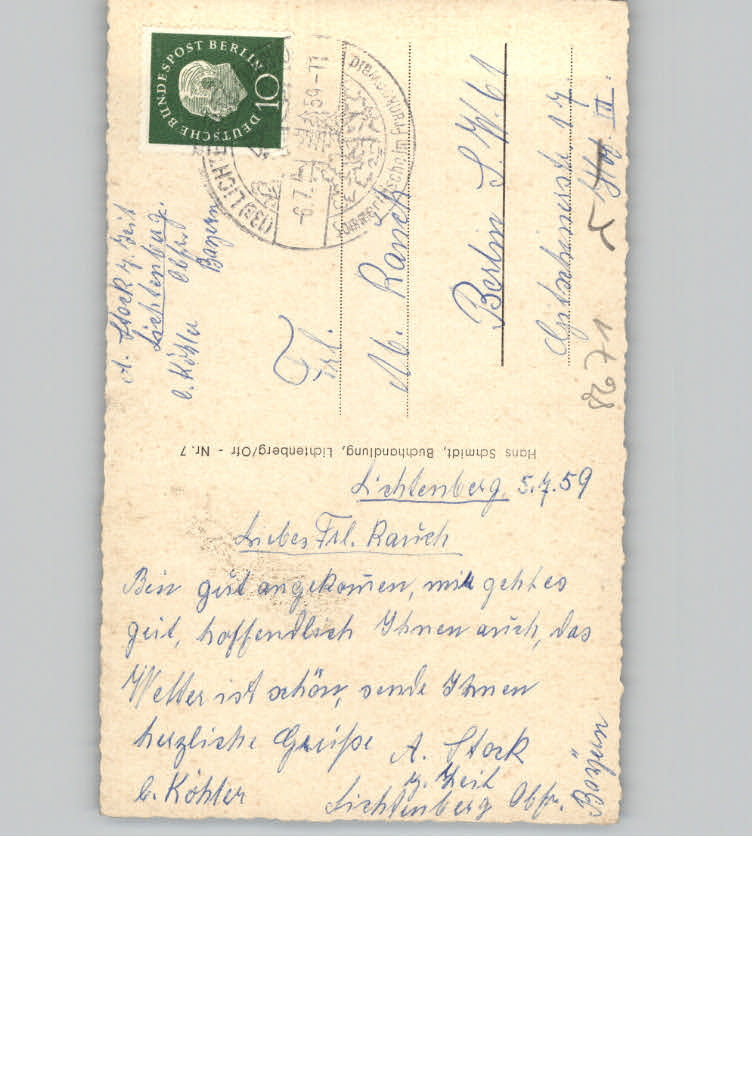 DEUTSCHE BUNDESPOST BERLIN
10
(13a) LICHTE
-6.7.59-11
Sommerfrische im Fran
A. Stock z. Zeit
Lichtenberg.
Obfr.
b. Köhler Bayern
Frl.
M. Rauch
Berlin S.W. 61
17.
III.
1728
Hans Schmidt, Buchhandlung, Lichtenberg/Ofr - Nr. 7
Lichtenberg, 5.7.59
Liebes Frl. Rauch
Bin gut angekom̅en, mir geht es
gut, hoffendlich Ihnen auch, das
Wetter ist schön, sende Ihnen
herzliche Grüße A. Stock
b. Köhler z. Zeit
Lichtenberg Obfr. Bayern